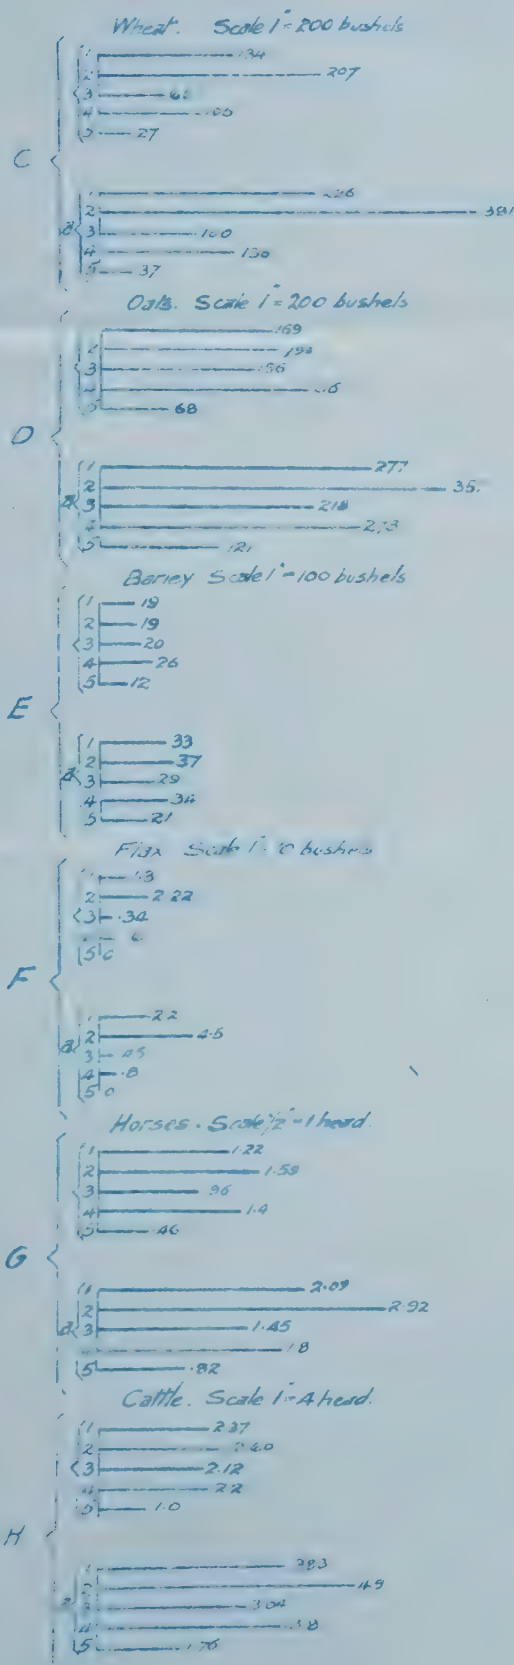 Wheat. Scale 1" = 200 bushels
1 134
2 207
3
4 105
5 27
C
1
2 381
a 3 100
4 130
5 37
Oats. Scale 1" = 200 bushels
169
2
3 156
5 68
D
1 277
2
a 3 218
4
5 121
Barley Scale 1" = 100 bushels
1 19
2 19
3 20
4 26
5 12
E
1 33
2 37
a 3 29
4 34
5 21
Flax Scale bushels
1.3
2 2.22
3 .34
5 0
F
1 2.2
a 2 4.5
3 .45
4 .8
5 0
Horses. Scale 1/2" = 1 head.
1 1.22
2 1.59
3 .96
4 1.4
5 .46
G
1 2.09
2 2.92
a 3 1.45
1.8
5 .82
Cattle. Scale 1" = 4 head.
1 2.37
2 2.60
3 2.12
4 2.2
5 1.0
H
3.83
4.9
3.04
4 3.8
5 1.76